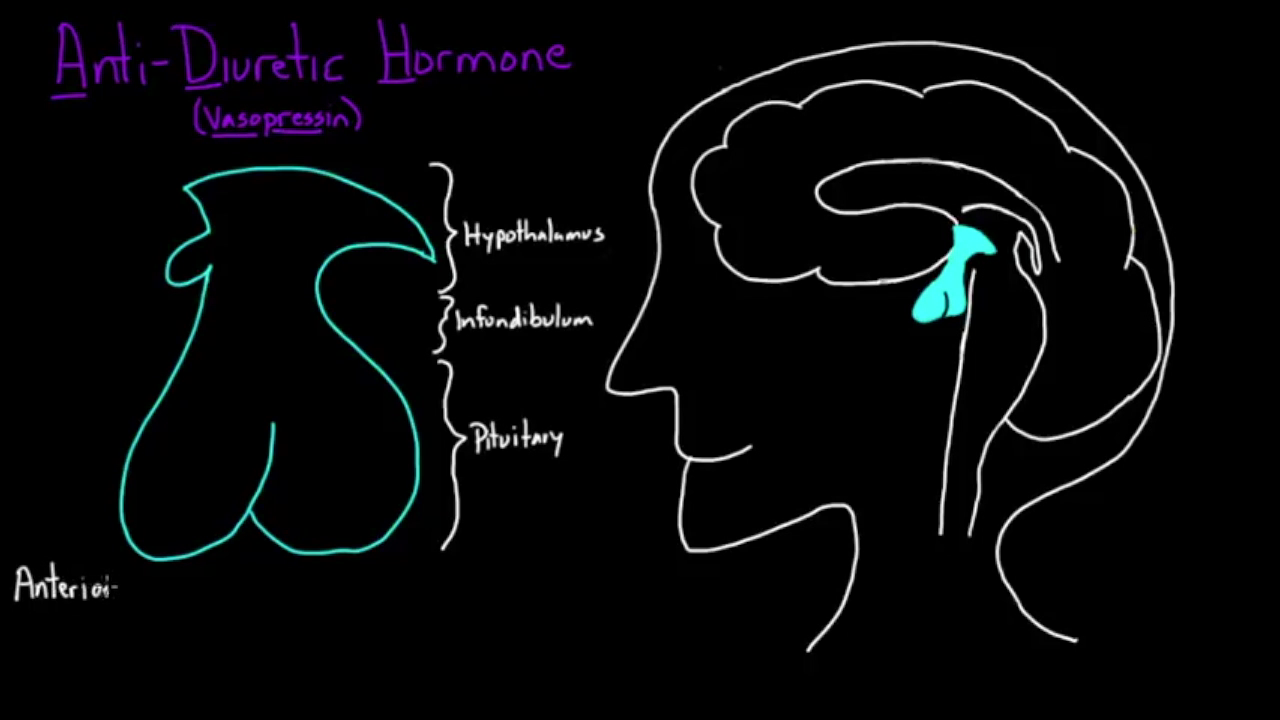 Anti-Diuretic Hormone
(Vasopressin)
Hypothalamus
Infundibulum
Pituitary
Anterior